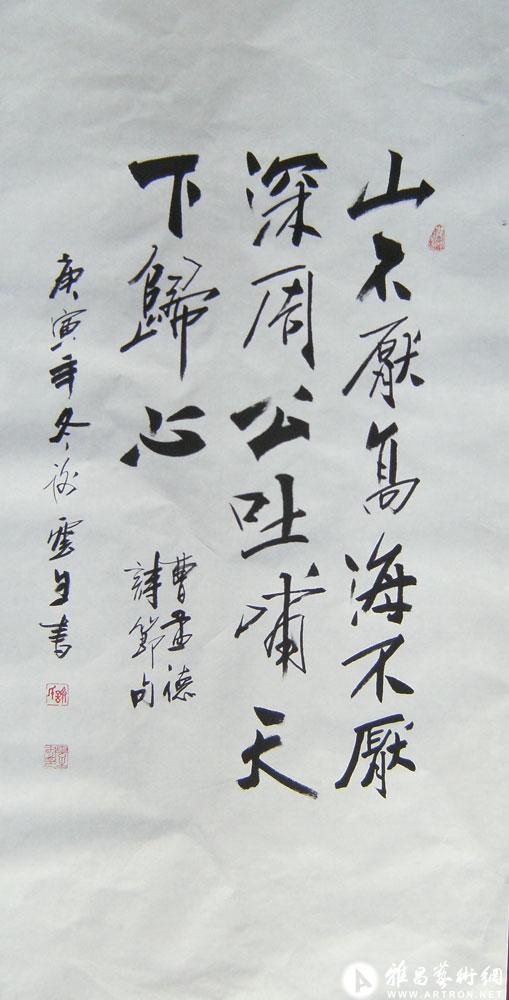 山不厭高海不厭
深周公吐哺天
下歸心
曹孟德
詩節句
庚寅年冬 雲 書
雅昌藝術網
WWW.ARTRON.NET